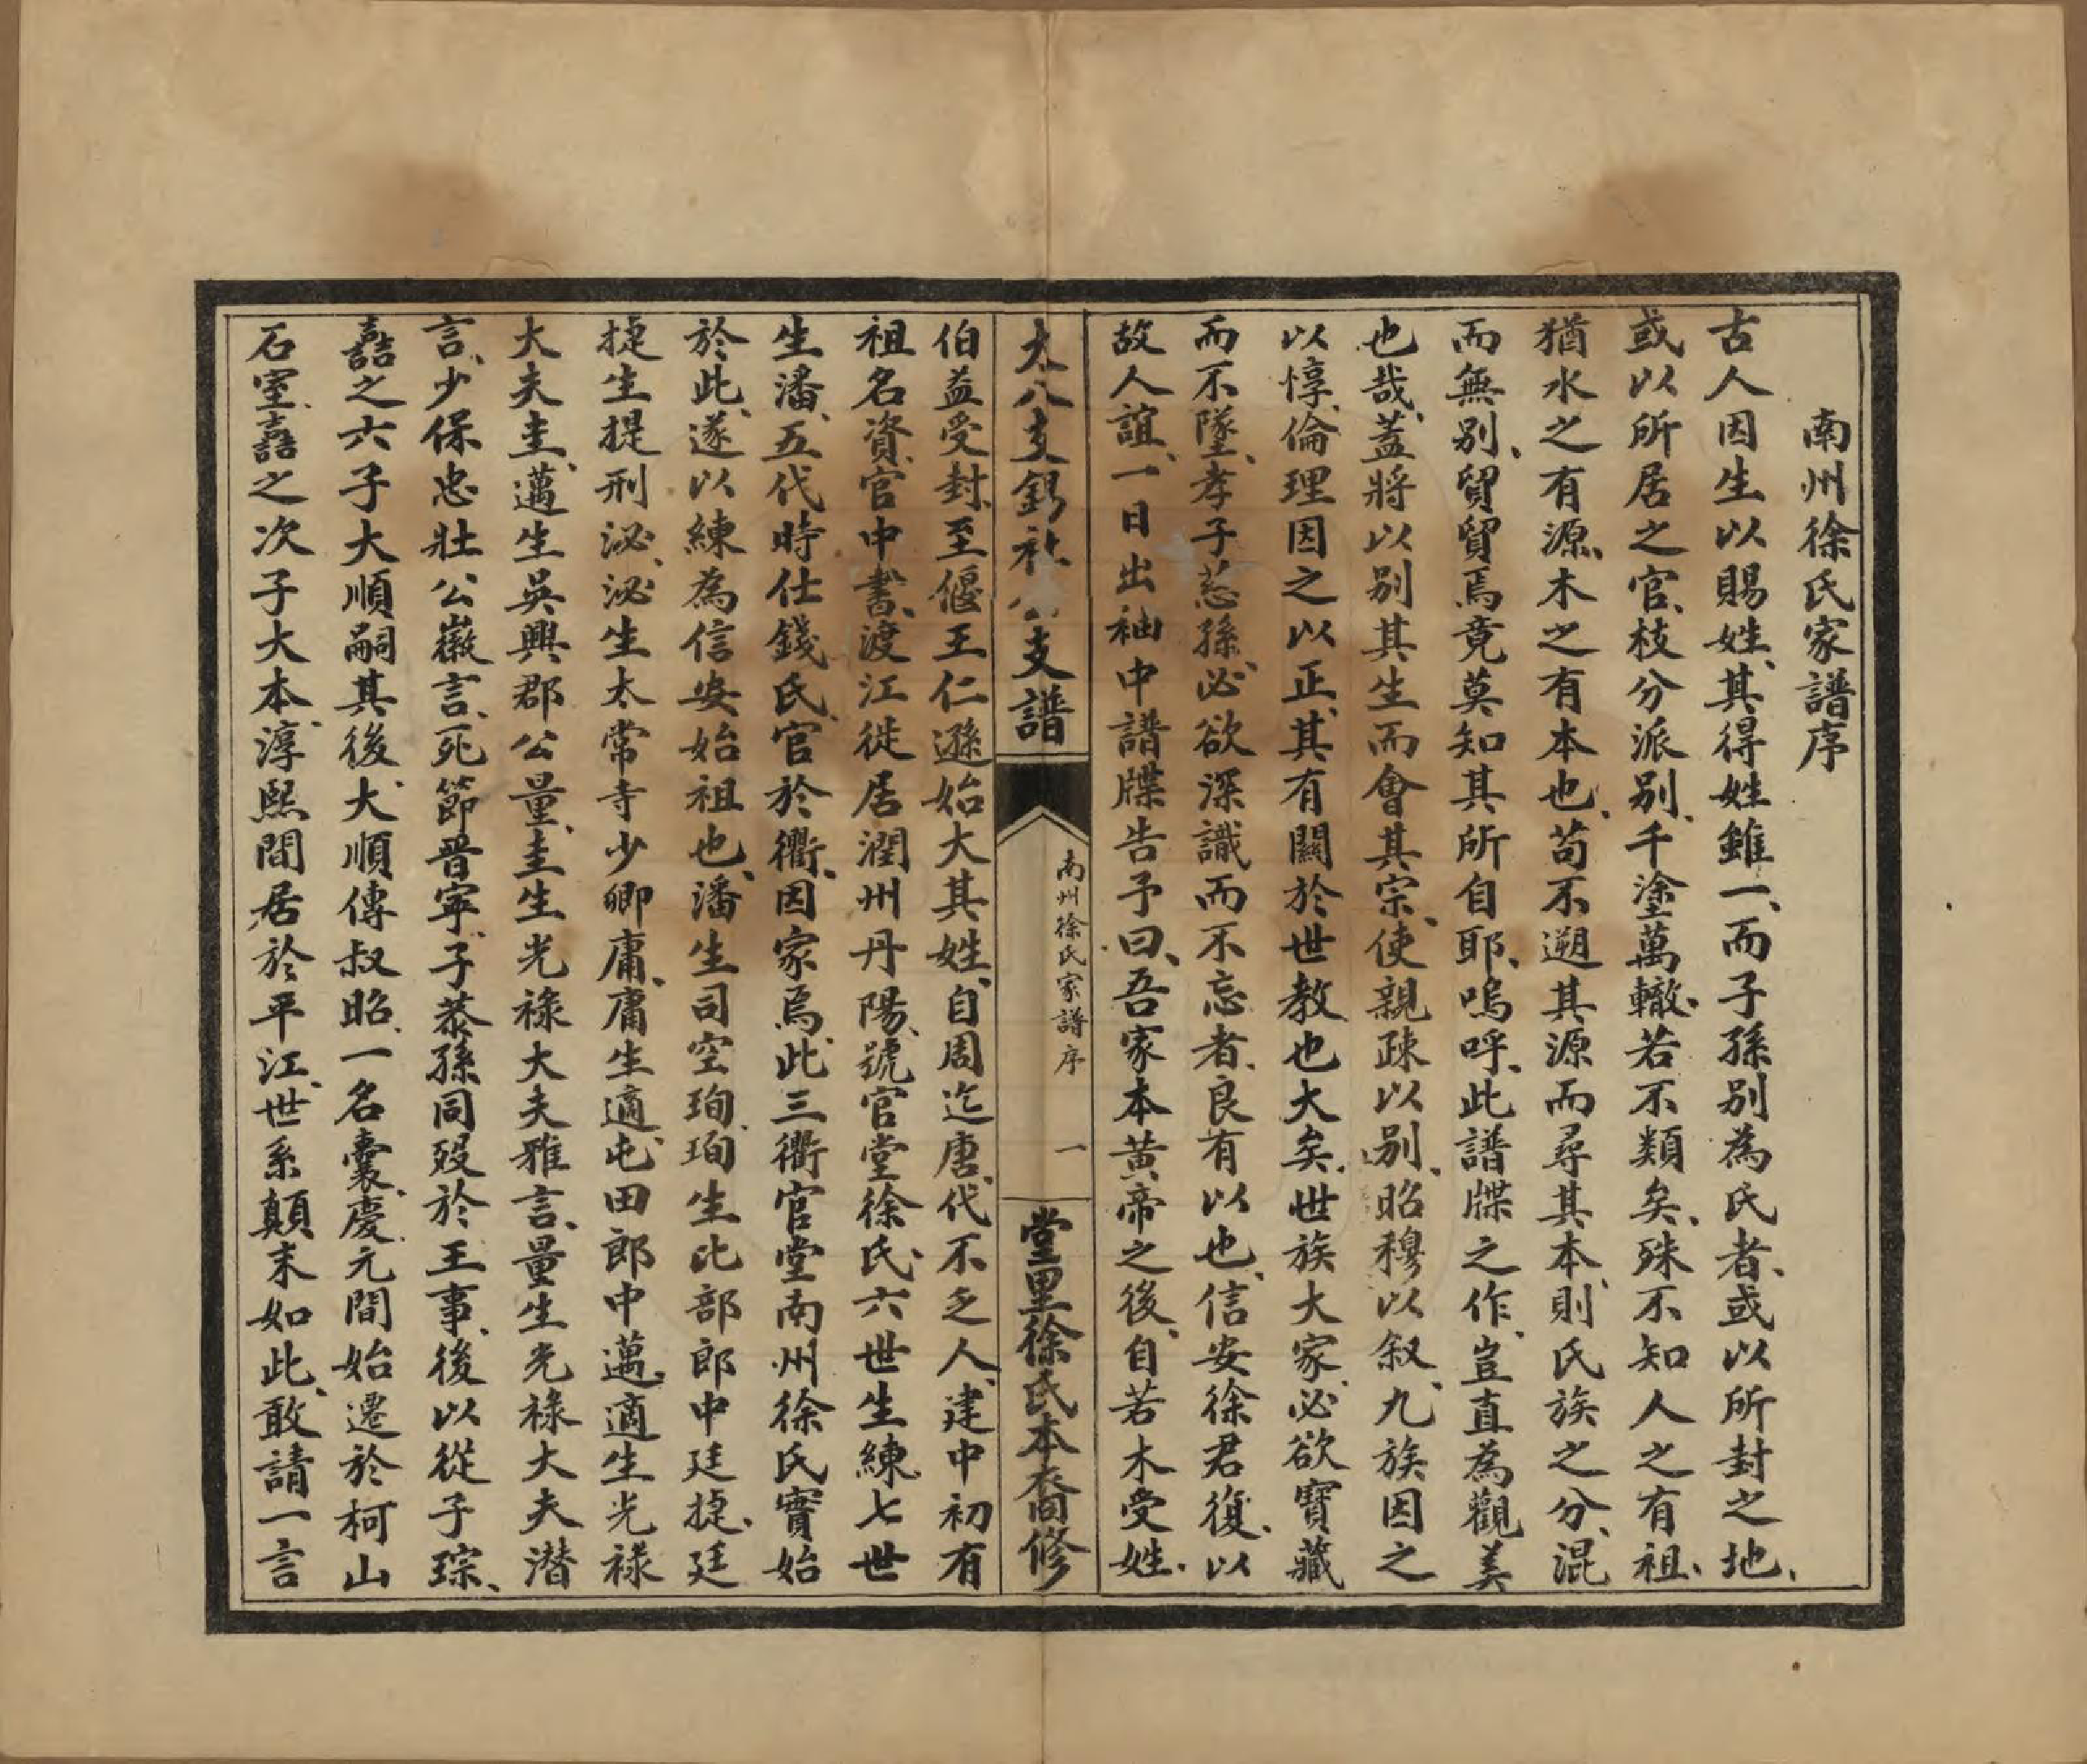 南州徐氏家譜序
古人因生以賜姓、其得姓雖一、而子孫別為氏者、或以所封之地、
或以所居之官、枝分派別、千塗萬轍、若不類矣、殊不知人之有祖、
猶水之有源、木之有本也、苟不遡其源而尋其本、則氏族之分、混
而無別、貿貿焉竟莫知其所自耶、嗚呼、此譜牒之作、豈直為觀美
也哉、蓋將以別其生而會其宗、使親疎以別、昭穆以叙、九族因之
以惇、倫理因之以正、其有關於世教也大矣、世族大家、必欲寶藏
而不墜、孝子慈孫、必欲深識而不忘者、良有以也、信安徐君復、以
故人誼、一日出袖中譜牒告予曰、吾家本黃帝之後、自若木受姓、
太八支 支譜
南州徐氏家譜序
一
堂里徐氏本裔修
伯益受封、至偃王仁遜始大其姓、自周迄唐、代不乏人、建中初有
祖名資、官中書、渡江徙居潤州丹陽、號官堂徐氏、六世生練、七世
生潘、五代時仕錢氏、官於衢、因家焉、此三衢官堂南州徐氏實始
於此、遂以練為信安始祖也、潘生司空珣、珣生比部郎中廷捷、廷
捷生提刑泌、泌生太常寺少卿庸、庸生適、屯田郎中邁、適生光祿
大夫圭、邁生吳興郡公量、圭生光祿大夫雅言、量生光祿大夫潛
言、少保忠壯公徽言、死節晉寧、子恭孫同歿於王事、後以從子琮、
嚞之六子大順嗣其後、大順傳叔昭、一名囊、慶元間始遷於柯山
石室、嚞之次子大本、淳熙間居於平江、世系顛末如此、敢請一言